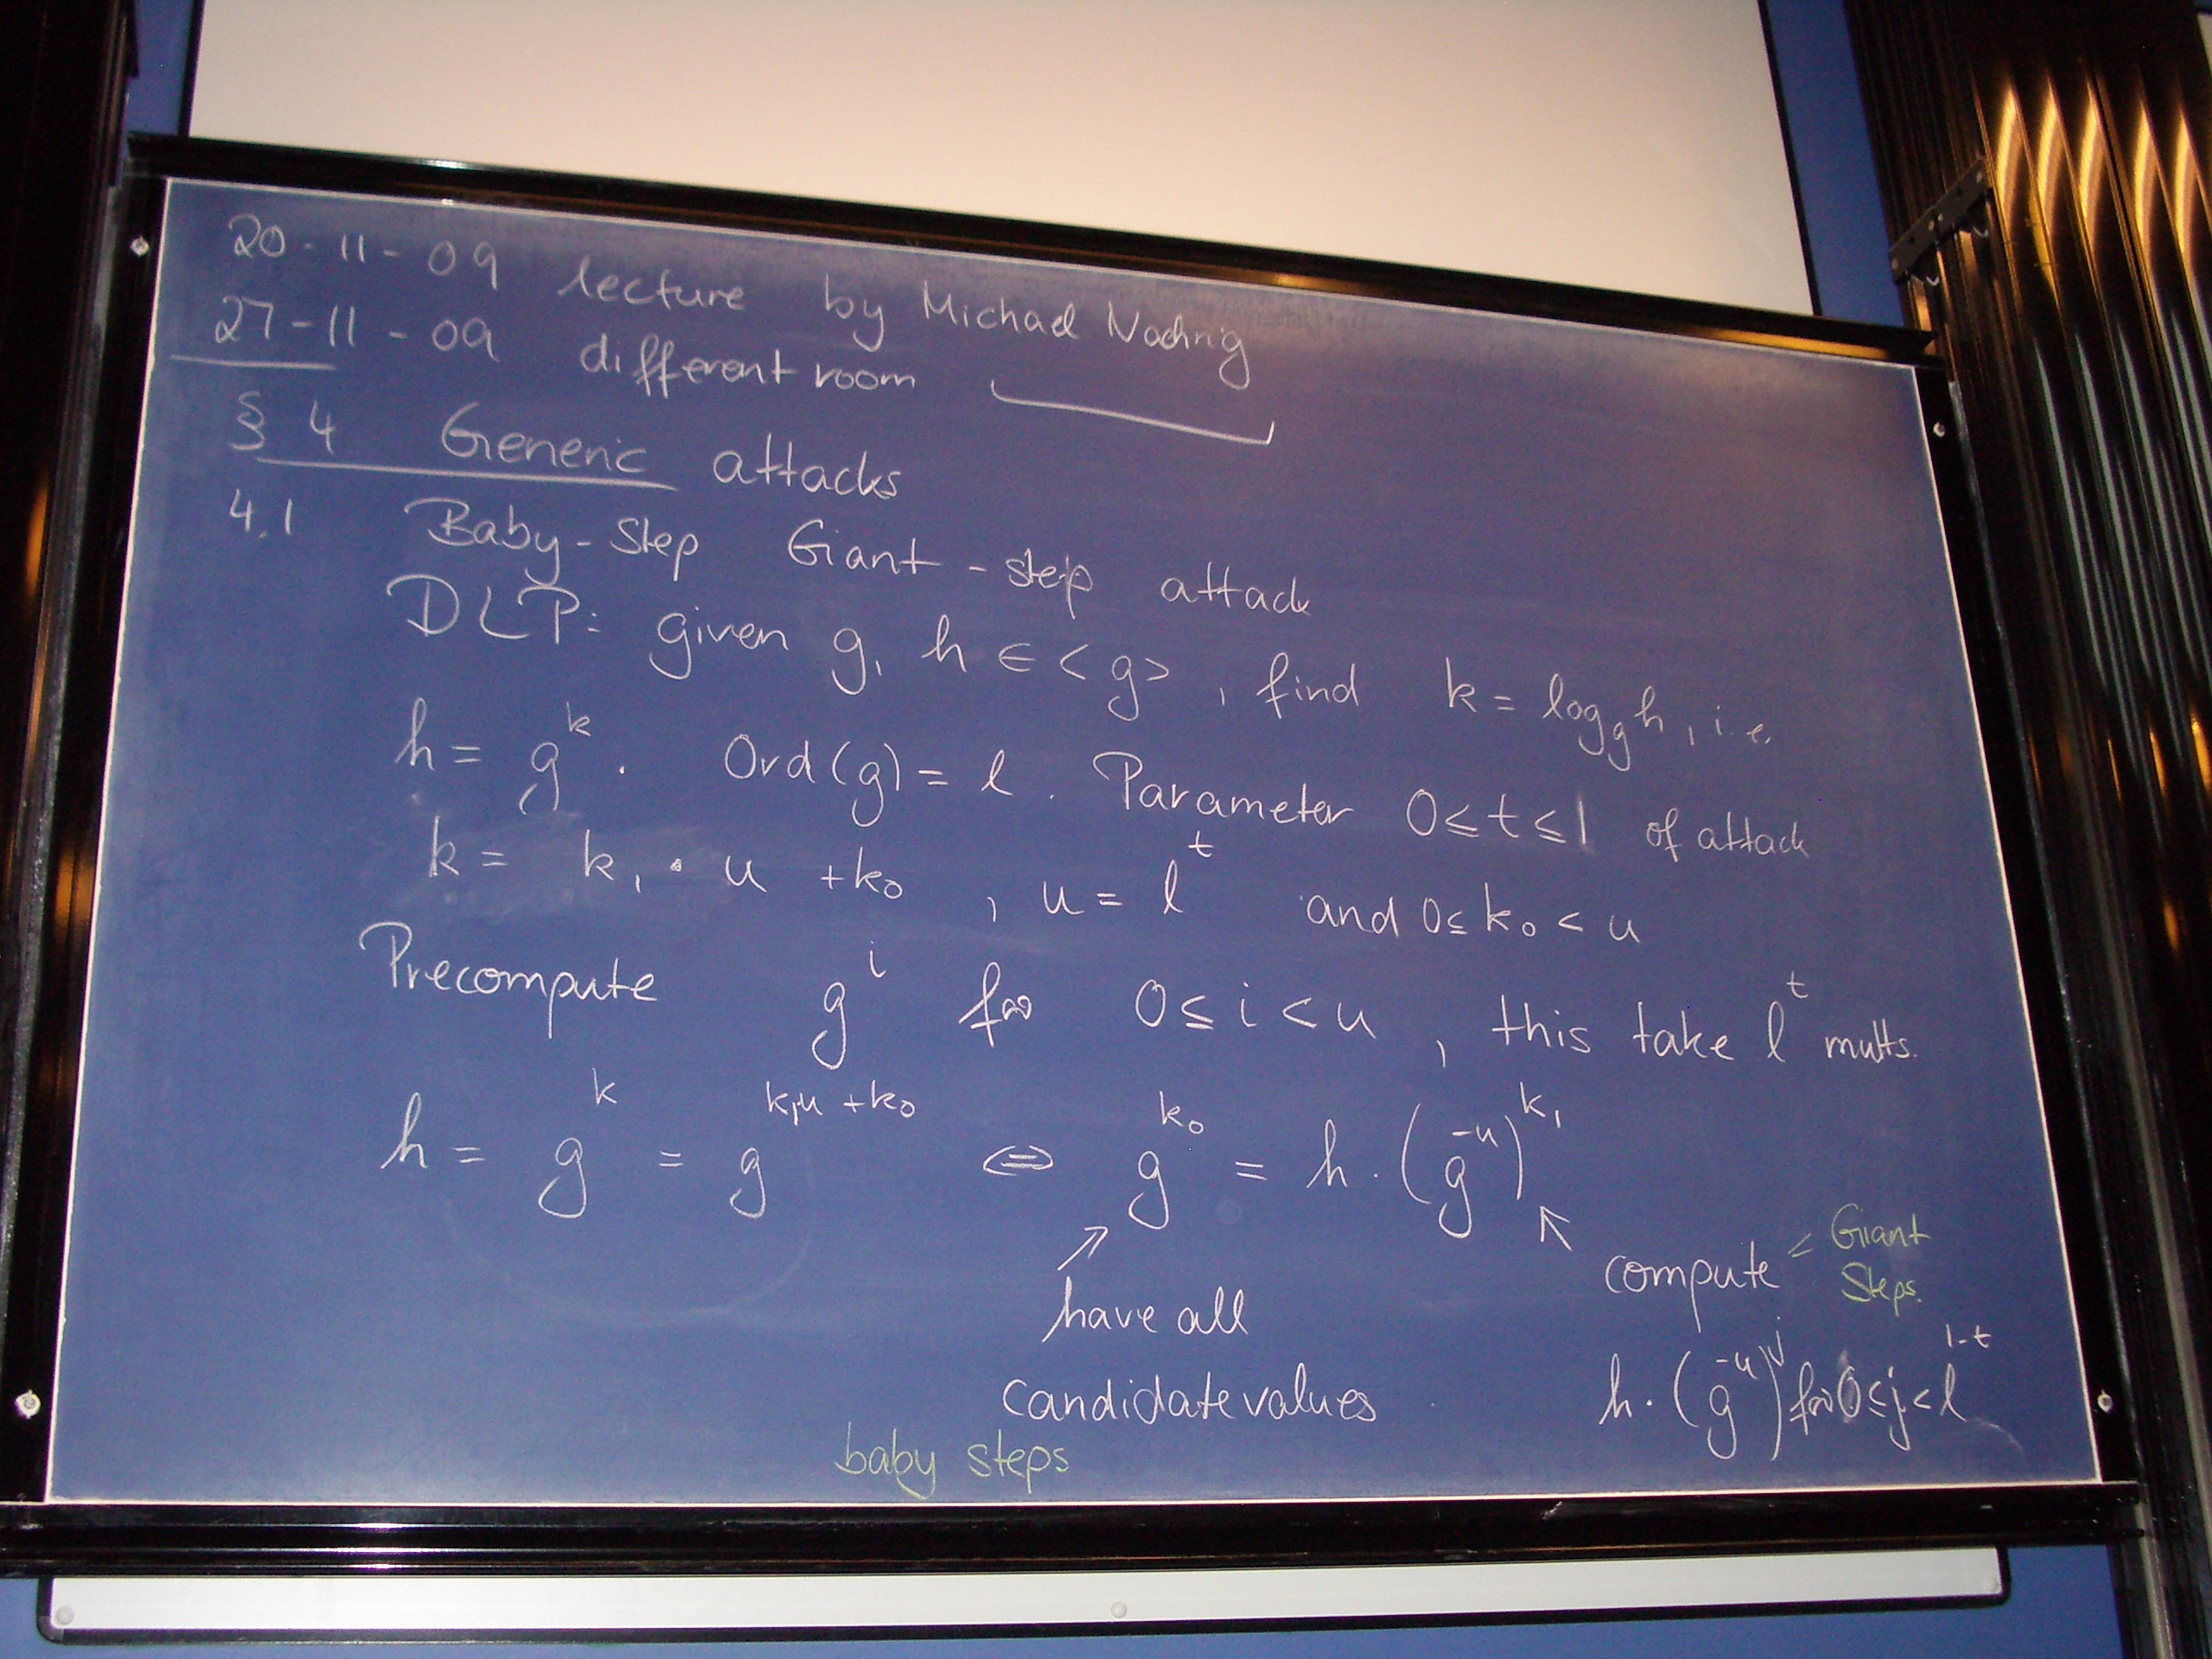 20-11-09 lecture by Michael Naehrig
27-11-09 different room
§ 4 Generic attacks
4.1 Baby-Step Giant-step attack
DLP: given g, h ∈ <g>, find k = log_g h, i.e.
h = g^k. Ord(g) = l. Parameter 0 ≤ t ≤ 1 of attack
k = k₁ · u + k₀, u = l^t and 0 ≤ k₀ < u
Precompute g^i for 0 ≤ i < u, this take l^t mults.
h = g^k = g^(k₁u + k₀) ⇔ g^k₀ = h · (g^-u)^k₁
have all
candidate values
baby steps
compute < Giant
Steps.
h · (g^-u)^j for 0 ≤ j < l^(1-t)